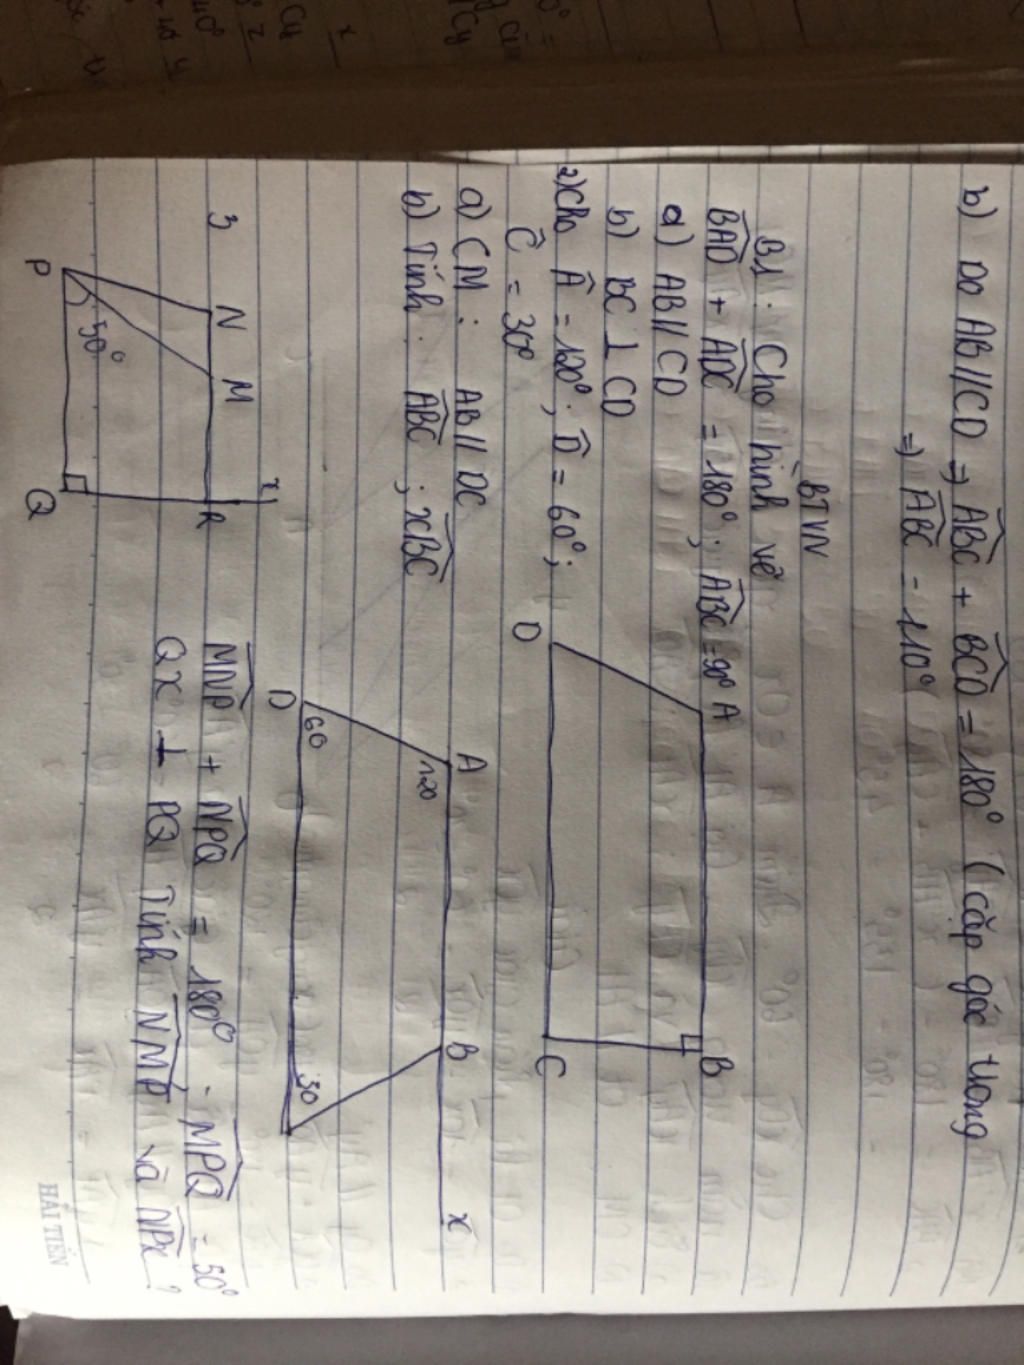 b) Do AB//CD => ABC + BCD = 180° (cặp góc trong
=) ABC = 110°
BTVN
B1: Cho hình vẽ
BAD + ADC = 180°; ABC = 90°
a) AB//CD
b) BC ⊥ CD
A
B
D
C
2) Cho Â = 120°; D̂ = 60°;
Ĉ = 30°
a) CM: AB // DC
b) Tính: ABC ; xBC
A
B
x
120
D
60
30
3
N
M
R
x
P
50°
Q
MNP + NPQ = 180°. MPQ = 50°
Qx ⊥ PQ Tính NMP và NPx?
HẢI TIẾN